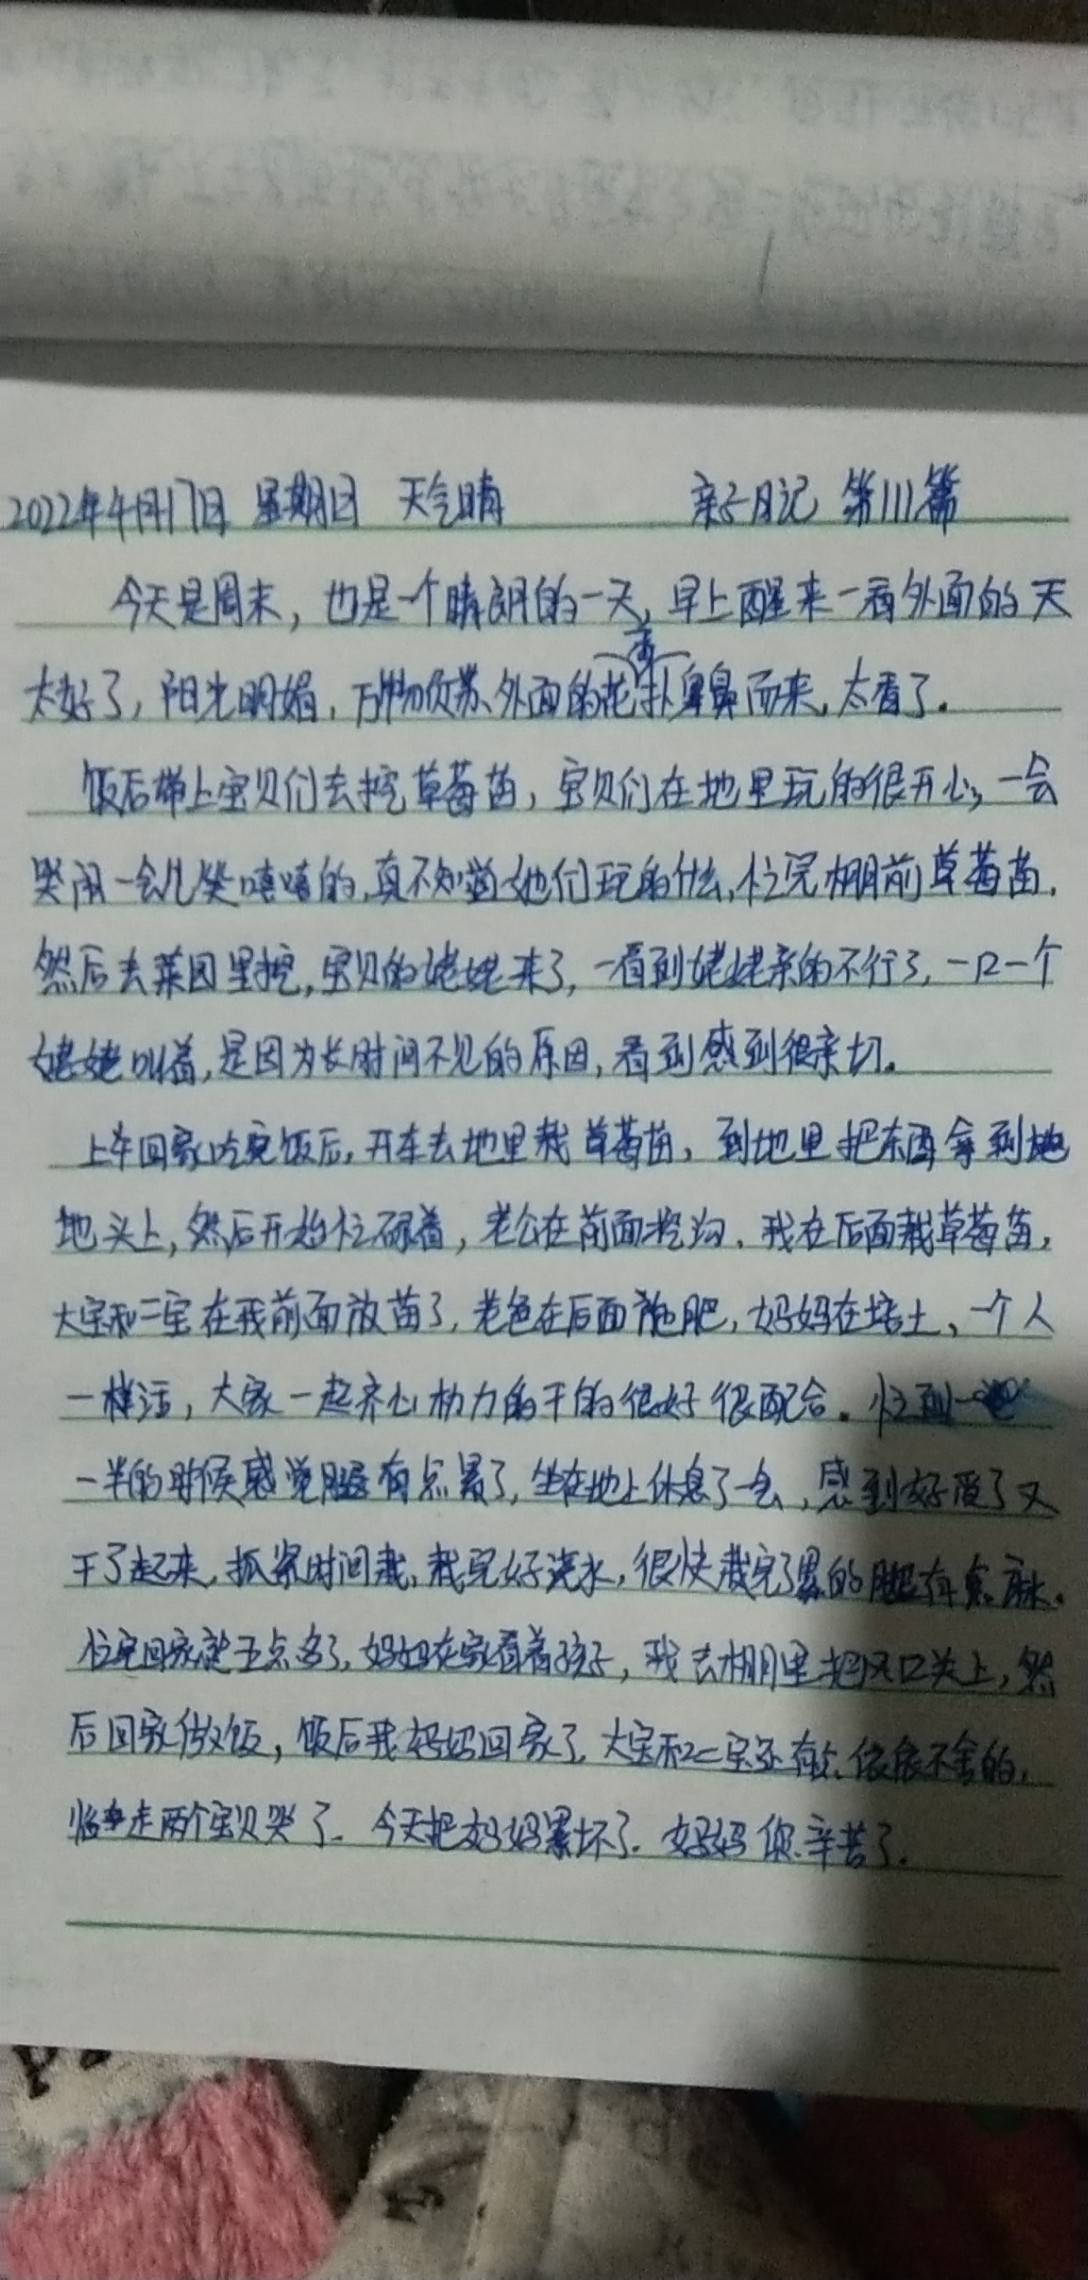 2022年4月17日 星期日 天气晴 亲子日记 第111篇
今天是周末，也是一个晴朗的一天，早上醒来一看外面的天
太好了，阳光明媚，万物复苏、外面的花香扑鼻而来，太香了。
饭后带上宝贝们去挖草莓苗，宝贝们在地里玩的很开心，一会
哭闹一会儿笑嘻嘻的，真不知道她们玩的什么，忙完棚前草莓苗，
然后去菜园里挖，宝贝的姥姥来了，一看到姥姥亲的不行了，一口一个
姥姥叫着，是因为长时间不见的原因，看到感到很亲切。
上午回家吃完饭后，开车去地里栽草莓苗，到地里把东西拿到地
地头上，然后开始忙碌着，老公在前面挖沟、我在后面栽草莓苗，
大宝和二宝在我前面放苗了，老爸在后面施肥，妈妈在培土、一个人
一样活，大家一起齐心协力的干的很好很配合。忙到一
一半的时候感觉腿有点累了，坐在地上休息了一会，感到好受了又
干了起来，抓紧时间栽，栽完好浇水，很快栽完了累的腿有点麻。
忙完回家就五点多了，妈妈在家看着孩子，我去棚里把风口关上，然
后回家做饭，饭后我妈妈回家了，大宝和二宝还有点依依不舍的，
临走两个宝贝哭了。今天把妈妈累坏了。妈妈您辛苦了。